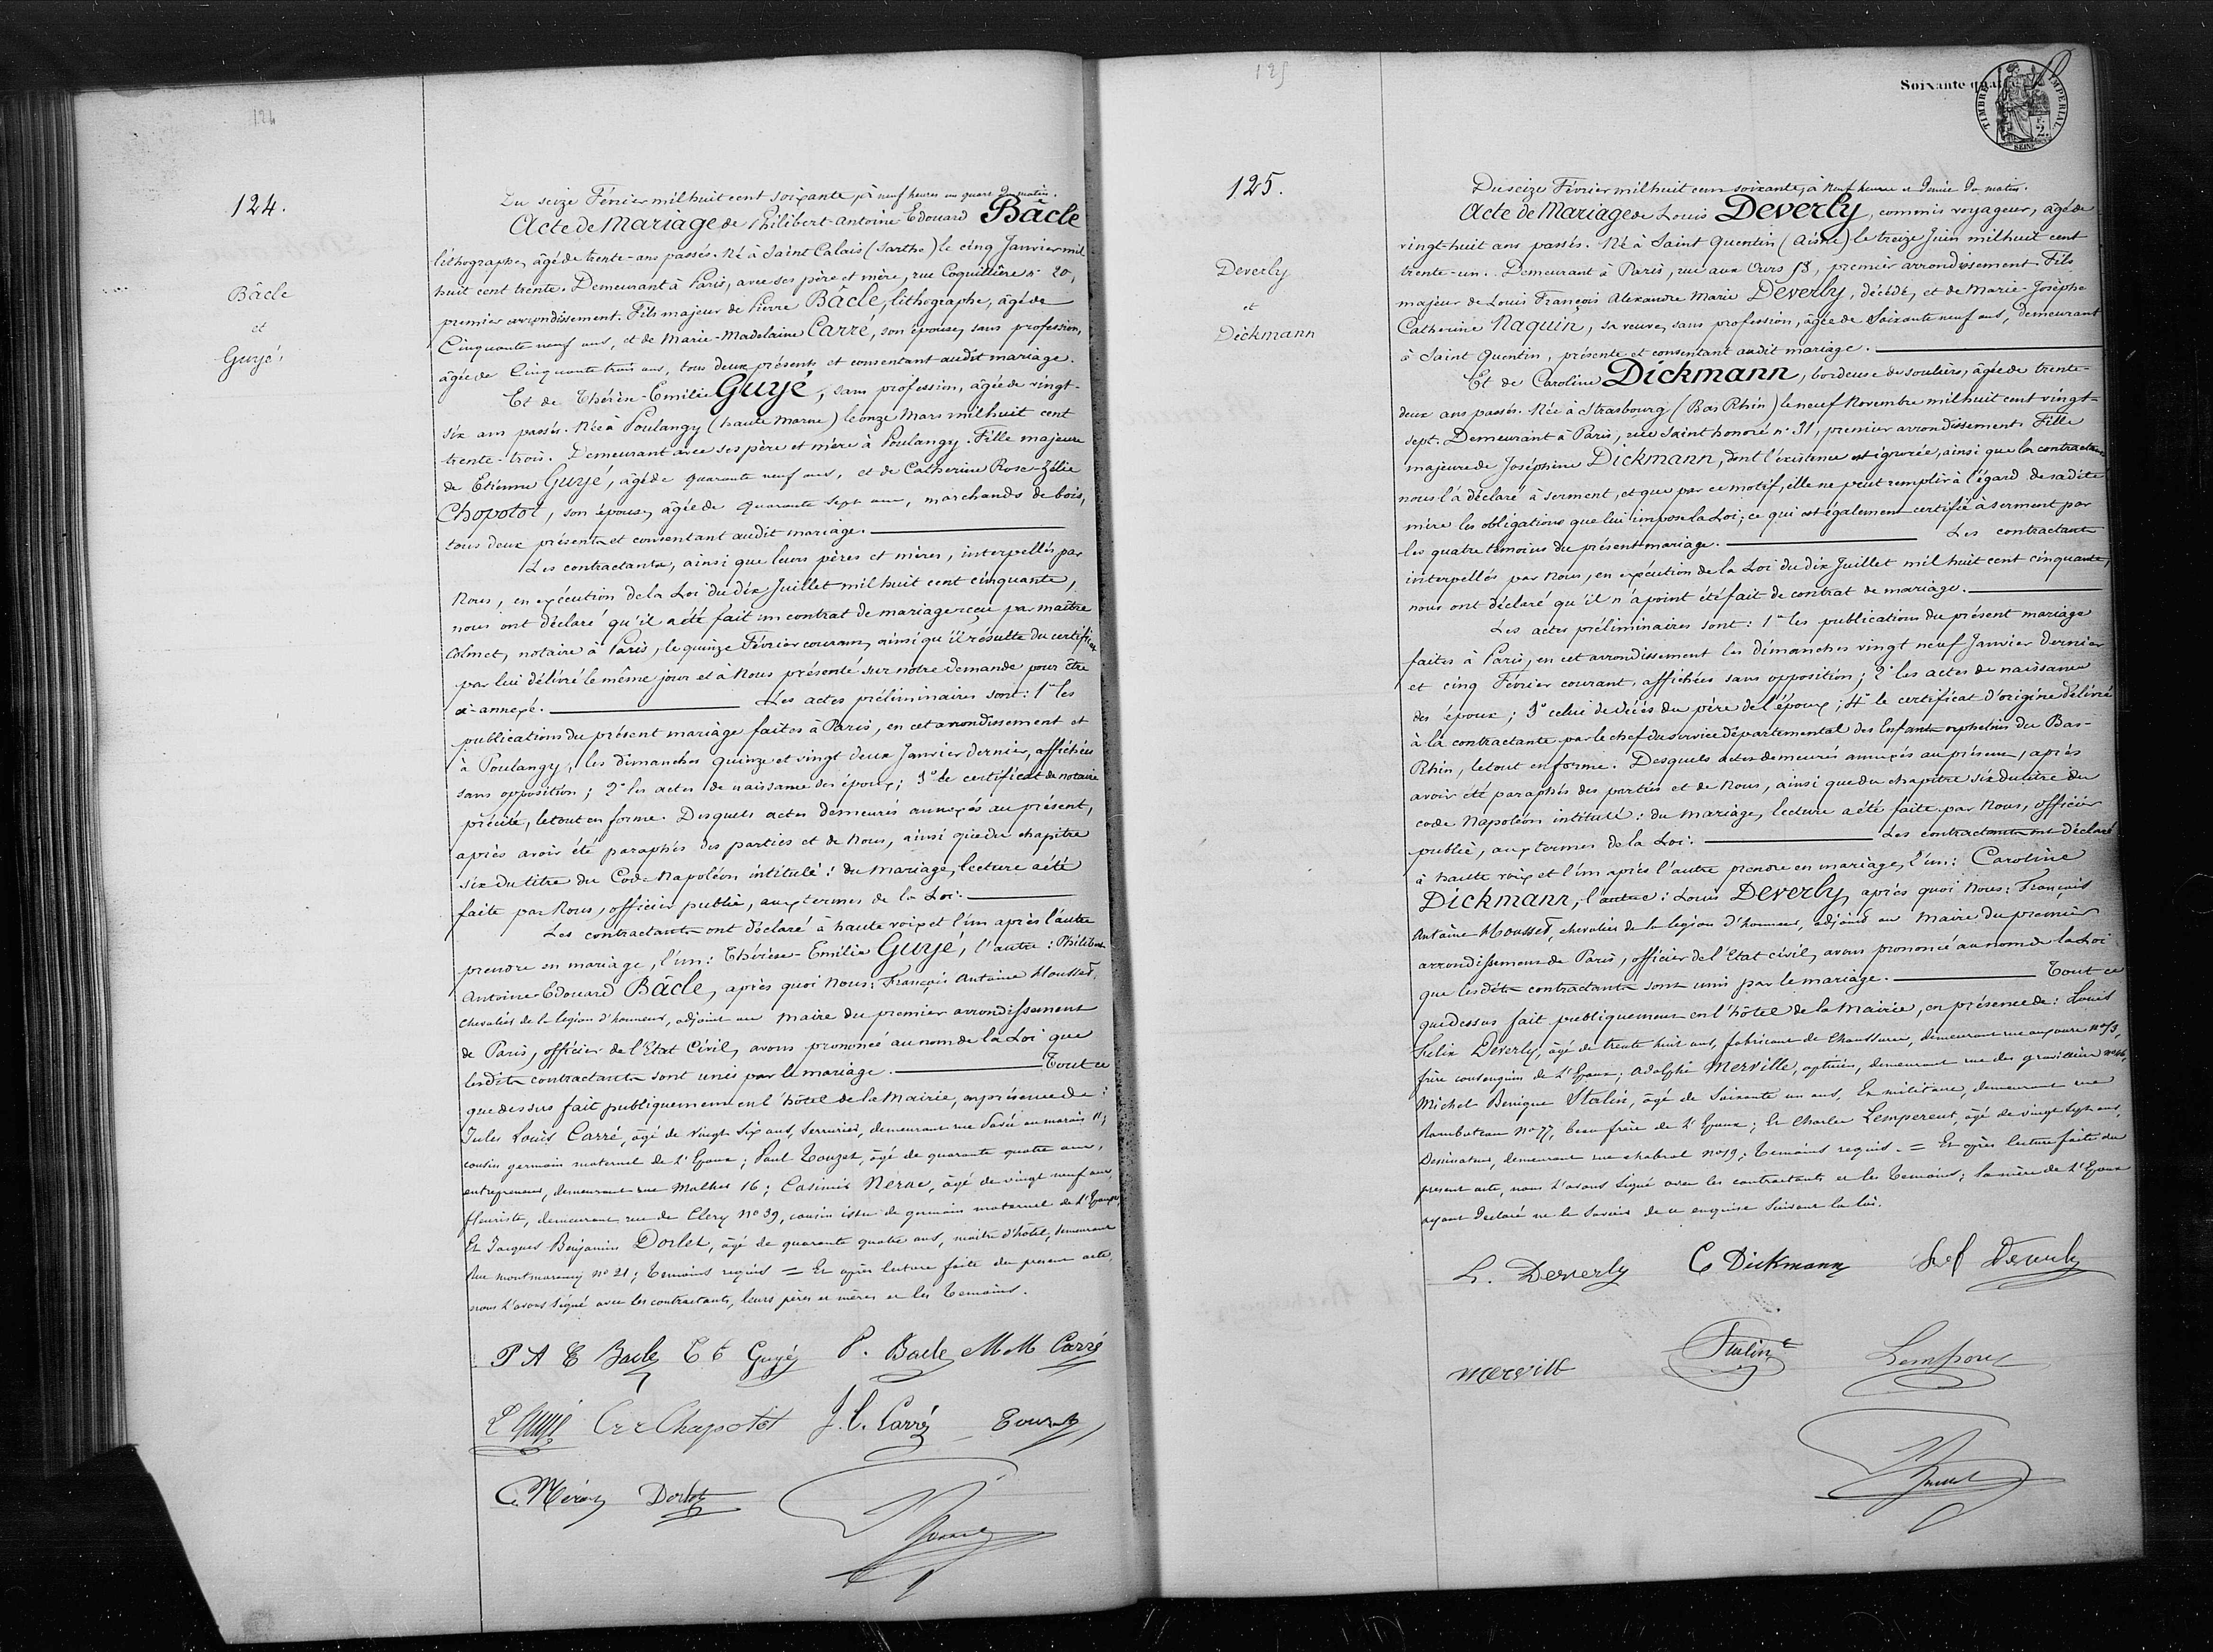 124
124.
Bâcle
et
Guyé.
Du seize Février mil huit cent soixante, à neuf heures un quart du matin.
Acte de Mariage de Philibert-Antoine Edouard Bâcle
lithographe, âgé de trente-ans passés. Né à Saint Calais (Sarthe) le cinq Janvier mil
huit cent trente. Demeurant à Paris, avec ses père et mère, rue Coquillière n° 20,
premier arrondissement. Fils majeur de Pierre Bâcle, lithographe, âgé de
Cinquante neuf ans, et de Marie-Madelaine Carré, son épouse, sans profession,
âgée de Cinquante trois ans, tous deux présents et consentant audit mariage.
Et de Thérèse-Emilie Guyé, sans profession, âgée de vingt-
six ans passés. Née à Poulangy (haute Marne) le onze Mars mil huit cent
trente-trois. Demeurant avec ses père et mère à Poulangy. Fille majeure
de Etienne Guyé, âgé de quarante neuf ans, et de Catherine Rose-Zélie
Chopotot, son épouse, âgée de quarante sept ans, marchands de bois,
tous deux présents et consentant audit mariage.
Les contractants, ainsi que leurs pères et mères, interpellés par
Nous, en exécution de la Loi du dix Juillet mil huit cent cinquante,
nous ont déclaré qu'il a été fait un contrat de mariage reçu par maître
Colmet, notaire à Paris, le quinze Février courant, ainsi qu'il résulte du certificat
par lui délivré le même jour et à Nous présenté sur notre demande pour être
ci-annexé. Les actes préliminaires sont: 1° les
publications du présent mariage faites à Paris, en cet arrondissement et
à Poulangy, les dimanches quinze et vingt deux Janvier dernier, affichées
sans opposition; 2° les actes de naissance des époux; 3° le certificat de notaire
précité, le tout en forme. Desquels actes demeurés annexés au présent,
après avoir été paraphés des parties et de Nous, ainsi que du chapitre
six du titre du Code Napoléon intitulé: du Mariage, lecture a été
faite par Nous, officier public, aux termes de la Loi.
Les contractants ont déclaré à haute voix et l'un après l'autre
prendre en mariage, l'un: Thérèse-Emilie Guyé, l'autre: Philibert
Antoine-Edouard Bâcle, après quoi Nous: François Antoine Mousset,
chevalier de la légion d'honneur, adjoint au Maire du premier arrondissement
de Paris, officier de l'Etat Civil, avons prononcé au nom de la Loi que
lesdits contractants sont unis par le mariage. Tout ce
que dessus fait publiquement en l'hôtel de la Mairie, en présence de:
Jules Louis Carré, âgé de vingt six ans, serrurier, demeurant rue Pavée au marais 11;
cousin germain maternel de l'Epoux; Paul Touzet, âgé de quarante quatre ans,
entrepreneur, demeurant rue Malher 16; Casimir Nérac, âgé de vingt neuf ans,
fleuriste, demeurant rue de Clery n° 39, cousin issu de germain maternel de l'Epoux,
Et Jacques Benjamin Dorlet, âgé de quarante quatre ans, maître d'hôtel, demeurant
Rue Montmorency n° 21; temoins requis = Et après lecture faite du present acte,
nous l'avons signé avec les contractants, leurs pères et mères et les temoins.
P A E Bacle T E Guyé P. Bacle M M Carré
E Guyé C R Z Chopotot J. L. Carré Touzet
C. Nérac Dorlet
125
Soixante quatre
TIMBRE IMPERIAL
2.
SEINE
125.
Deverly
et
Dickmann
Du seize Février mil huit cent soixante, à neuf heures et demie du matin.
Acte de Mariage de Louis Deverly, commis voyageur, âgé de
vingt-huit ans passés. Né à Saint Quentin (Aisne) le treize Juin mil huit cent
trente-un. Demeurant à Paris, rue aux Ours 53, premier arrondissement. Fils
majeur de Louis François Alexandre Marie Deverly, décédé, et de Marie-Josèphe
Catherine Naquin, sa veuve, sans profession, âgée de Soixante neuf ans, demeurant
à Saint Quentin, présente et consentant audit mariage.
Et de Caroline Dickmann, bordeuse de souliers, âgée de trente-
deux ans passés. Née à Strasbourg (Bas Rhin) le neuf Novembre mil huit cent vingt-
sept. Demeurant à Paris, rue Saint honoré n° 31, premier arrondissement. Fille
majeure de Joséphine Dickmann, dont l'existence est ignorée, ainsi que la contractante
nous l'a déclaré à serment, et que par ce motif, elle ne peut remplir à l'égard de sadite
mère les obligations que lui impose la Loi; ce qui est également certifié à serment par
les quatre témoins du présent mariage. Les contractants
interpellés par Nous, en exécution de la Loi du dix Juillet mil huit cent cinquante,
nous ont déclaré qu'il n'a point été fait de contrat de mariage.
Les actes préliminaires sont: 1° les publications du présent mariage
faites à Paris, en cet arrondissement les dimanches vingt neuf Janvier dernier
et cinq Février courant, affichées sans opposition; 2° les actes de naissance
des époux; 3° celui de décès du père de l'époux; 4° le certificat d'origine délivré
à la contractante par le chef du service départemental des Enfants orphelins du Bas-
Rhin, le tout en forme. Desquels actes demeurés annexés au présent, après
avoir été paraphés des parties et de Nous, ainsi que du chapitre six du titre du
code Napoléon intitulé: du Mariage, lecture a été faite par Nous, officier
public, aux termes de la Loi. Les contractants ont déclaré
à haute voix et l'un après l'autre prendre en mariage, l'un: Caroline
Dickmann, l'autre: Louis Deverly, après quoi Nous: François
Antoine Mousset, chevalier de la légion d'honneur, adjoint au Maire du premier
arrondissement de Paris, officier de l'Etat civil, avons prononcé au nom de la Loi
que lesdits contractants sont unis par le mariage. Tout ce
que dessus fait publiquement en l'hôtel de la Mairie, en présence de: Louis
Félix Deverly, âgé de trente huit ans, fabricant de chaussures, demeurant rue aux ours n° 53,
frère consanguin de l'Epoux; Adolphe Merville, opticien, demeurant rue des gravilliers n° 46,
Michel Benigne Stalin, âgé de Soixante un ans, Ex militaire, demeurant rue
Rambuteau n° 77, beau frère de l'Epoux; Et Charles Lempereut, âgé de vingt sept ans,
Dessinateur, demeurant rue chabrol n° 19; temoins requis. = Et après lecture faite du
present acte, nous l'avons signé avec les contractants et les temoins; la mère de l'Epoux
ayant déclaré ne le savoir de ce enquise suivant la loi.
L. Deverly C Dickmann Deverly
Merville Stalin